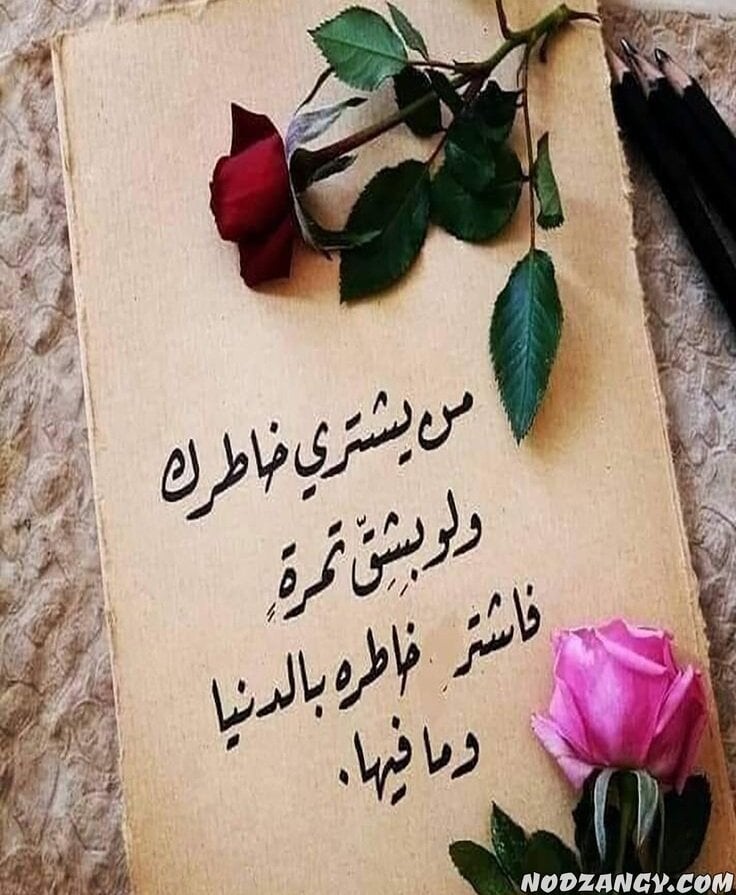 من يشتري خاطرك
ولو بِشِقّ تمرةٍ
فاشترِ خاطره بالدنيا
وما فيها.
NODZANGY.COM